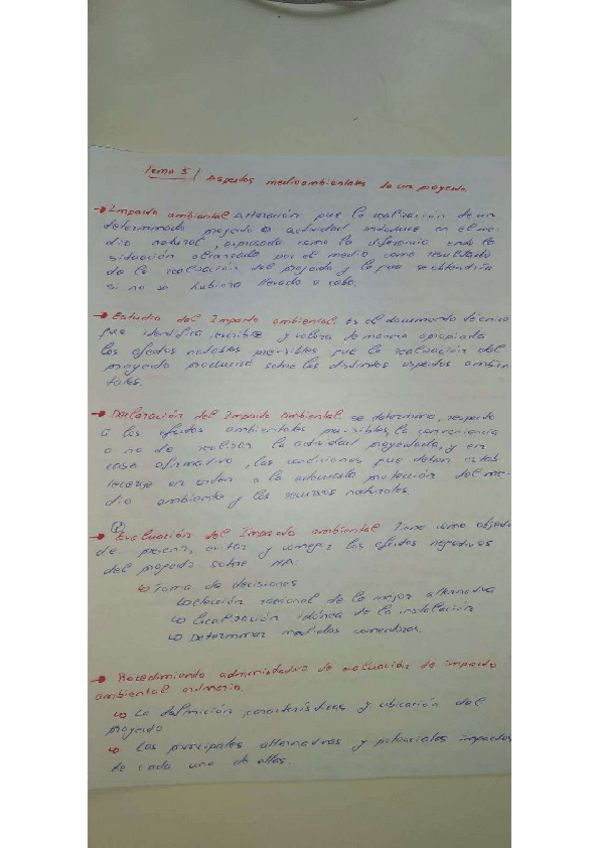 Tema 5 / Aspectos medioambientales de un proyecto
→ Impacto ambiental Alteración que la realización de un
determinado proyecto o actividad introduce en el me-
dio natural, expresada como la diferencia entre la
situación alcanzada por el medio como resultado
de la realización del proyecto y la que se obtendría
si no se hubiera llevado a cabo.
→ Estudio del Impacto ambiental. Es el documento técnico
que identifica, describe y valora de manera apropiada
los efectos notables previsibles que la realización del
proyecto produciría sobre los distintos aspectos ambien
tales.
→ Declaración del Impacto ambiental se determina, respecto
a los efectos ambientales previsibles, la conveniencia
o no de realizar la actividad proyectada, y en
caso afirmativo, las condiciones que deben estab
lecerse en orden a la adecuada protección del me-
dio ambiente y los recursos naturales.
→ Evaluación del Impacto ambiental Tiene como objeti
de prevenir, evitar y corregir los efectos negativos
del proyecto sobre MA:
↳ Toma de decisiones
↳ elección racional de la mejor alternativa
↳ localización idónea de la instalación
↳ Determinar medidas correctoras.
→ Procedimiento administrativo de evaluación de impacto
ambiental ordinaria.
↳ La definición características y ubicación del
proyecto
↳ Las principales alternativas y potenciales impactos
de cada una de ellas.